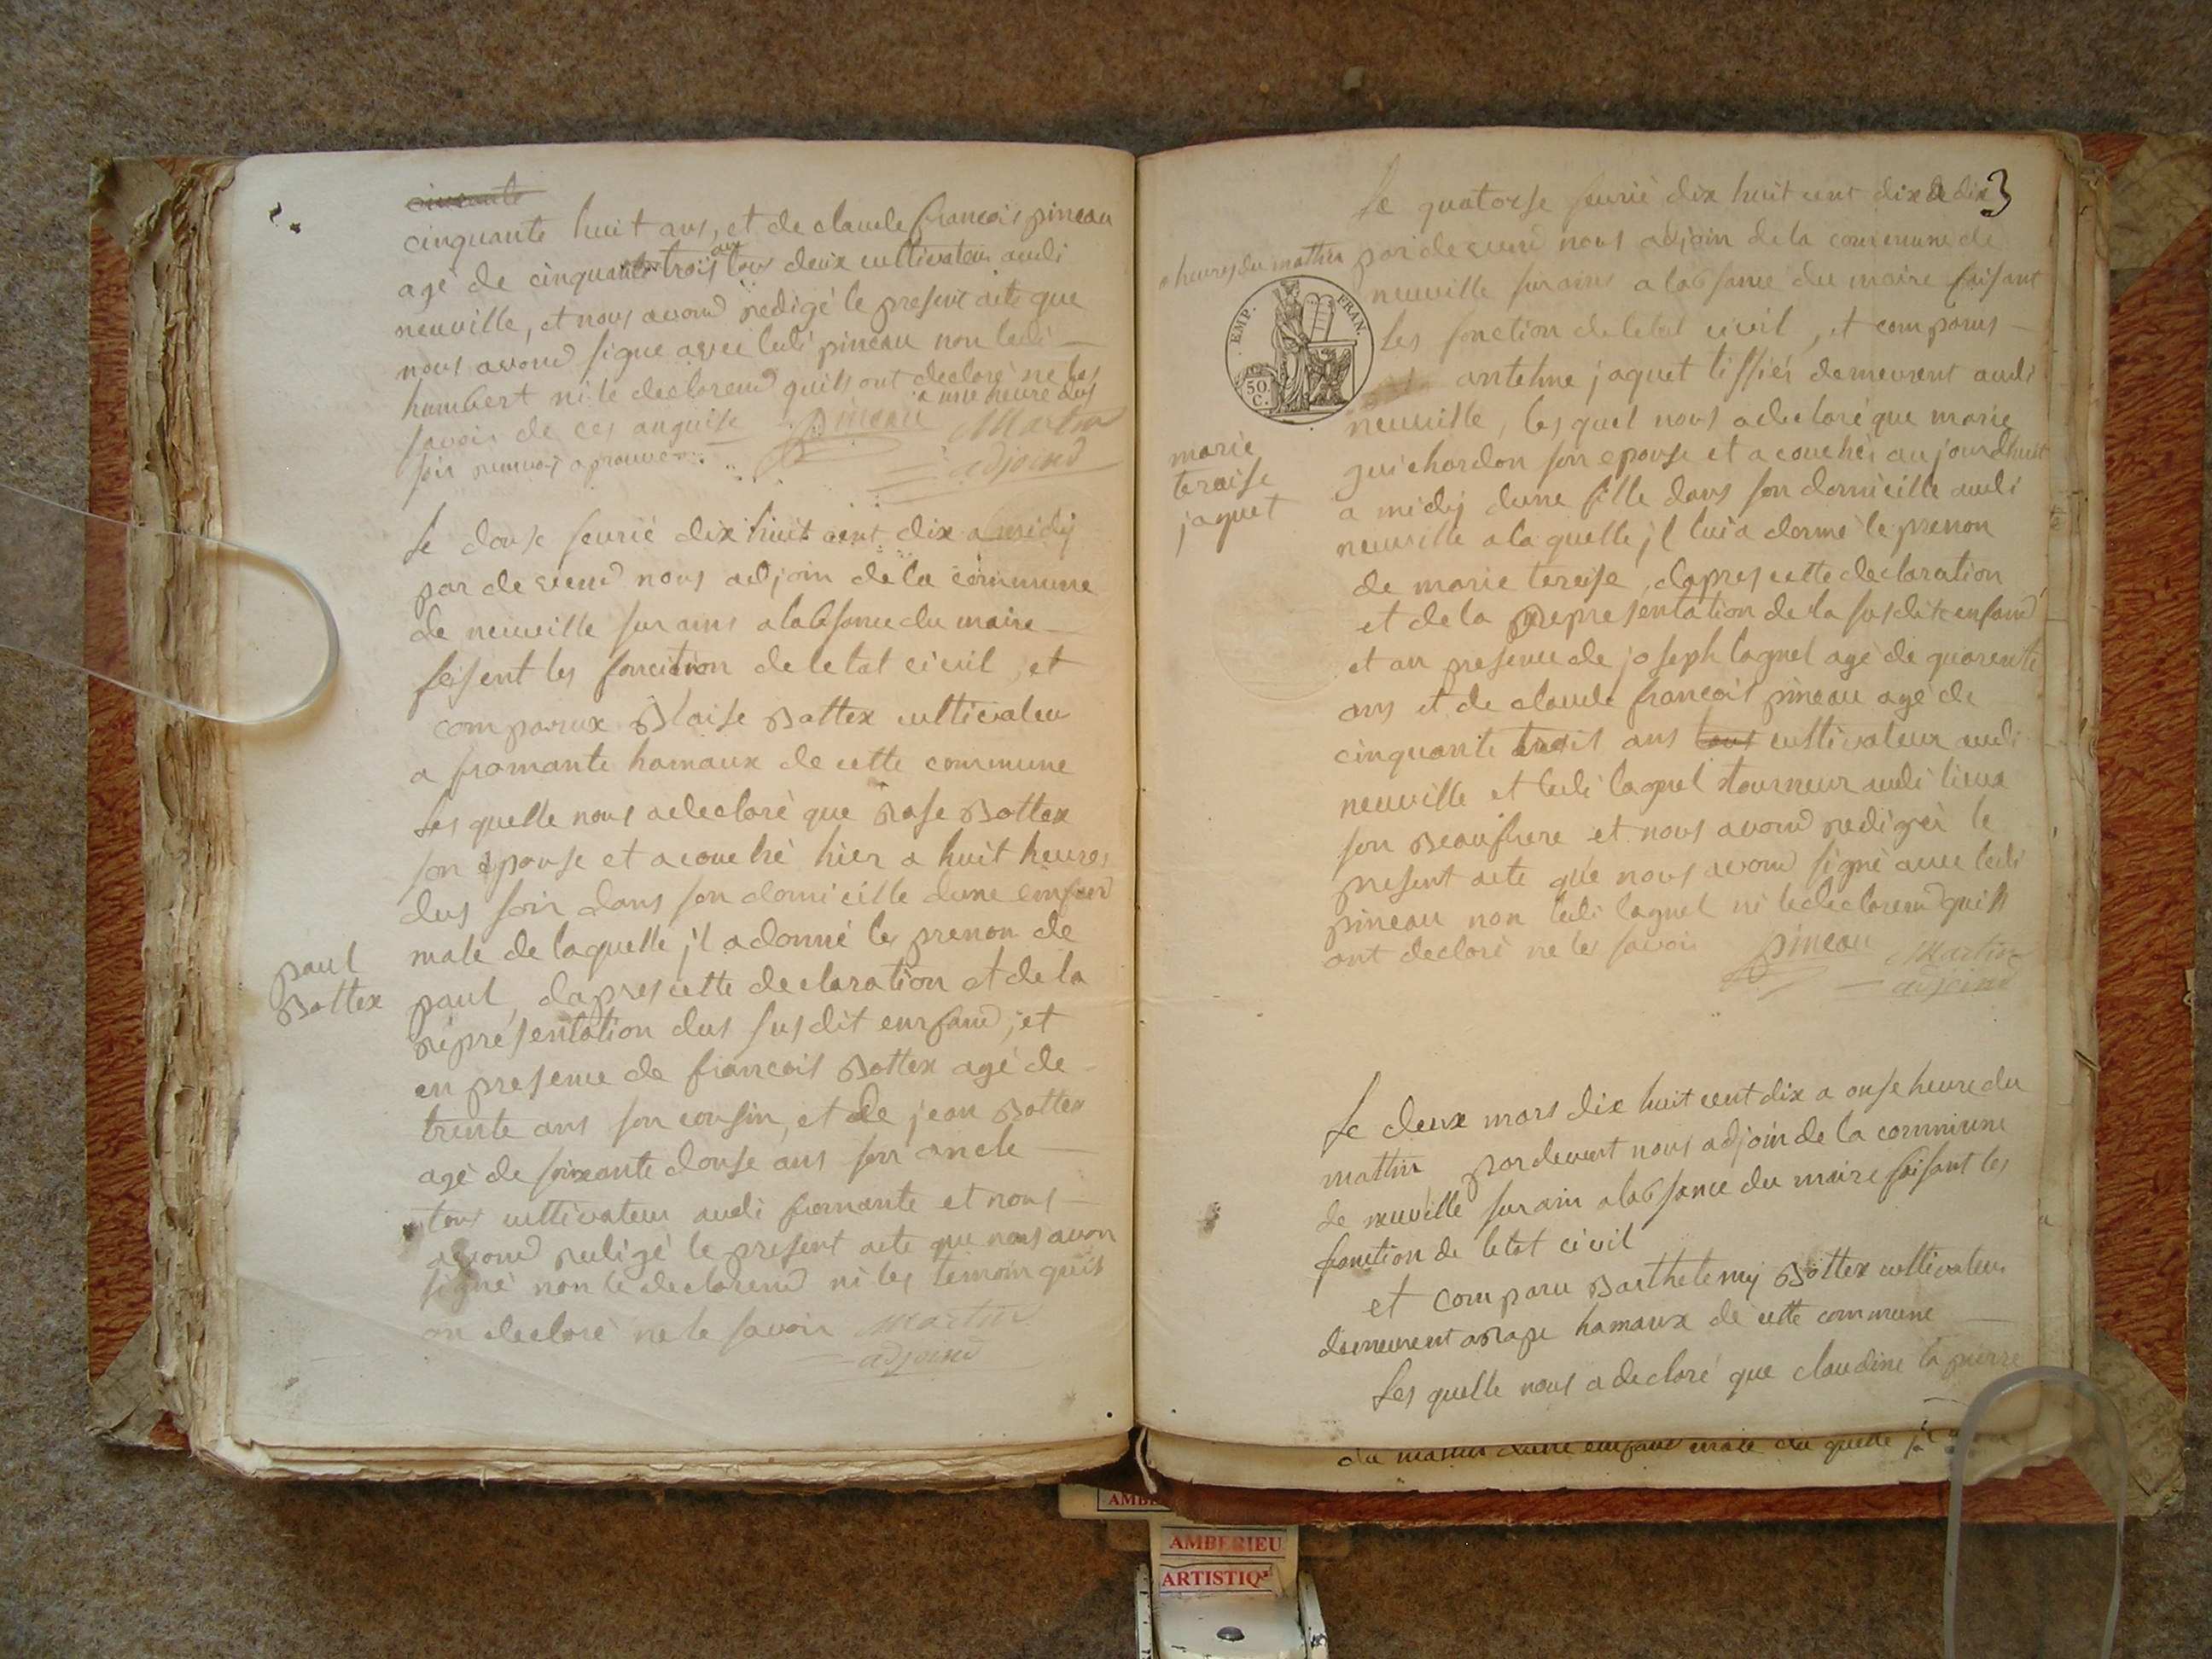 cinquante
cinquante huit ans, et de claude francois pineau
agé de cinquante trois ans tous deux cultivateur audi
neuville, et nous avond redigé le present acte que
nous avond signe avec ledi pineau non ledi
humbert ni le declarend quils ont declaré ne les
savoir de ces anquise a une heure dus
soir renvois aprouvé
pineau
Martin
adjoind
Le douse feurié dix huit cent dix a midij
par devend nous adjoin de la commune
de neuville sur ains a labsance du maire
feisent les fonction de letat civil, et
comparux Blaise Bottex cultivateu
a fromante hamaux de cette commune
Les quelle nous a declaré que Rose Bottex
son epouse et acouché hier a huit heures
dus soir dans son domicille dune enfend
male de laquelle jl a donné les prenon de
paul
Bottex
paul, dapres cette declaration et de la
représentation dus susdit enfand, et
en presence de francois Bottex agé de
trente ans son cousin, et de jean Bottex
agé de soixante douse ans son oncle
tous cultivateur audi fromante et nous
avond redigé le present acte que nous avon
signé non le declarend ni les temoin quis
on declaré ne le savoir Martin
adjoind
3
Le quatorse feurié dix huit cent dix a dix
heures du mathin par devend nous adjoin de la commune de
neuville sur ains a labsance du maire faisant
les fonction de letat civil, et comparus
EMP. FRAN.
50 C.
antelme jaquet tissiés demeurent audi
neuville, les quel nous a declaré que marie
marie
teraise
jaquet
guichardon son epouse et acouchéi aujourdhuit
a midij dune fille dans son domicille audi
neuville a la quelle jl lui a donné le prenon
de marie tereise, dapres cette declaration
et de la representation de la susdite enfand
et an presence de joseph lagnel agé de quarente
ans et de claude francois pineau agé de
cinquante trois ans tous cultivateur audi
neuville et ledi lagnel tourneur audi lieux
son Beaufrere et nous avond redigéi le
present acte que nous avond signé avec ledi
pineau non ledi lagnel ni le declarend quils
ont declaré ne les savoir pineau Martin
adjoind
Le deux mars dix huit cent dix a onse heure du
mathin pardevent nous adjoin de la commune
de neuville sur ain a labsance du maire faisant les
fonction de letat civil
et comparu Barthelemij Bottex cultivateur
demeurent a Rape hamaux de cette commune
Les quelle nous a declaré que claudine la pierre
du mathin dune enfand male du quelle jl
AMBERIEU
ARTISTIQ